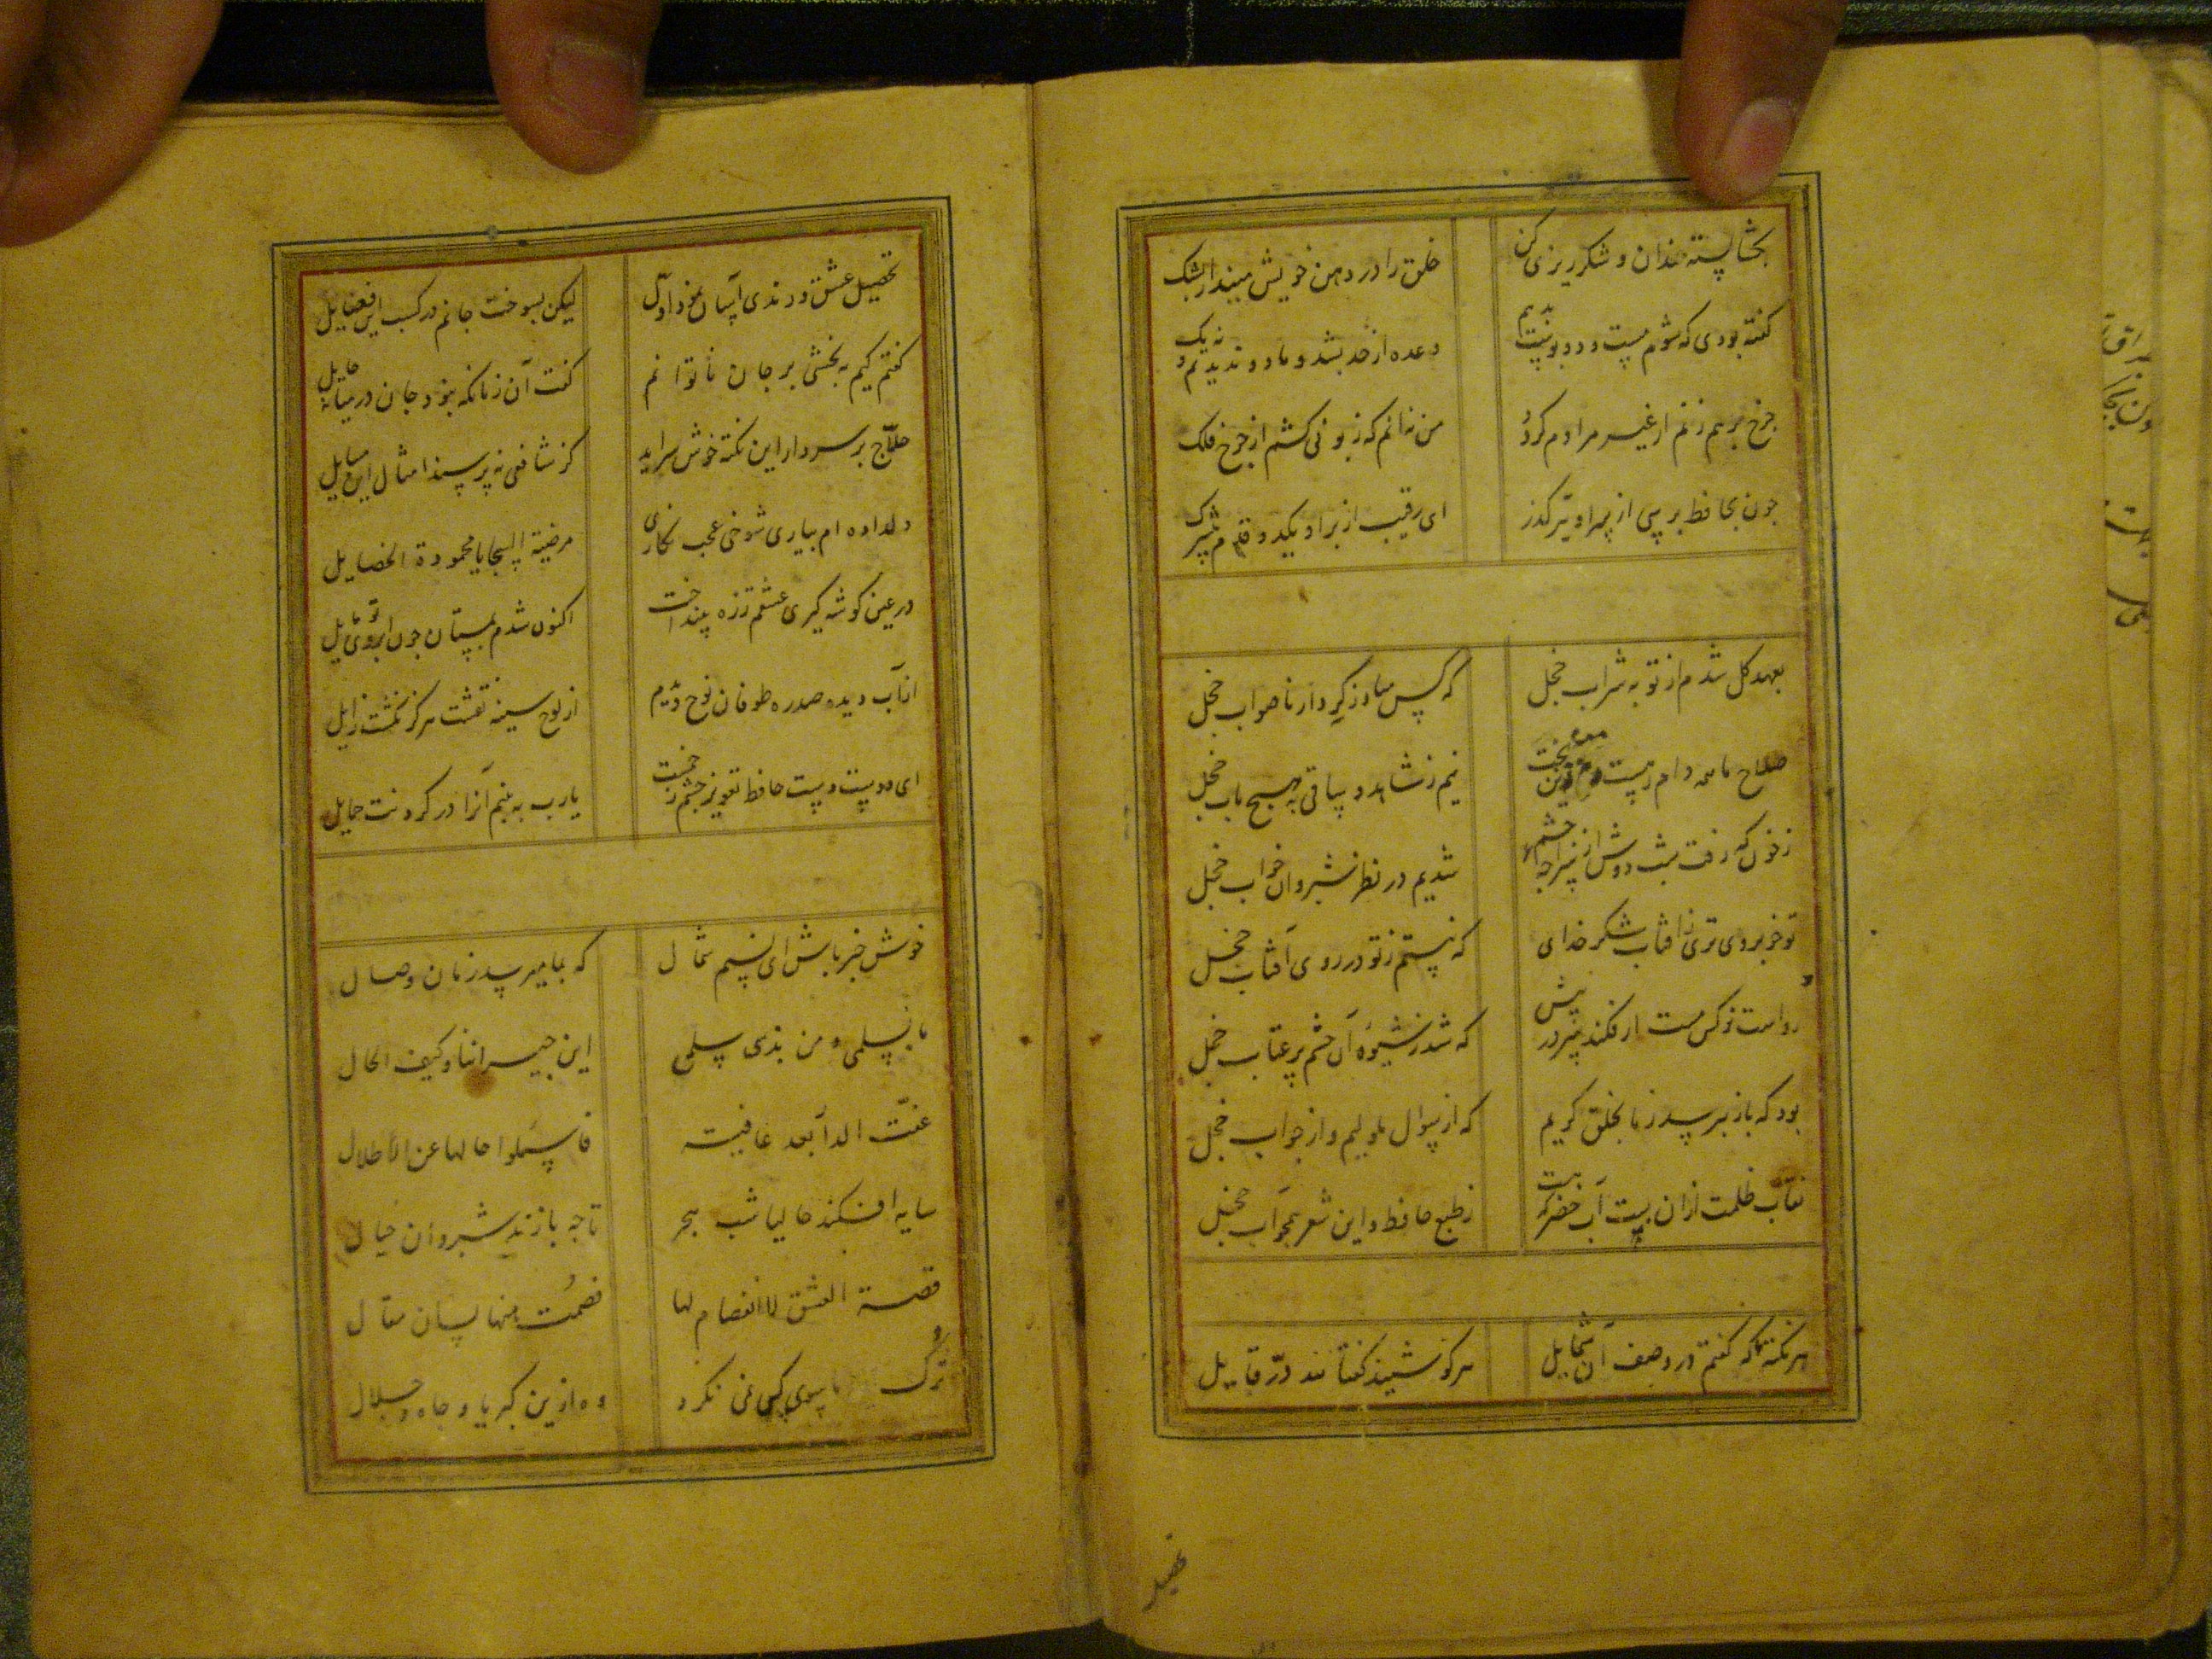 بخشا پسته خندان و شکر ریزی کن
خلق را در دهن خویش مینداز بشک
کفته بودی که شوم مست و دو بوست بدیم
وعده از حد بشد و ما دو ندیدیم و نه یک
چرخ برهم زنم ار غیر مرادم کردد
من نه آنم که زبونی کشم از چرخ فلک
چون بحافظ بر پسی از بر او تیز کذر
ای رقیب از بر او یکدو قدم
بعهد کل شدم از توبه شراب خجل
که کس مباد ز کردار ناصواب خجل
صلاح ما همه دام رهست و من زین بحث
نیم ز شاهد و ساقی به هیچ باب خجل
ز خون که رفت شب دوش از سراچه چشم
شدیم در نظر شبروان خواب خجل
تو خوبروی تری ز افتاب شکر خدای
که نیستم ز تو در روی آفتاب خجل
رواست نرکس مست ار فکند سر در پیش
که شد ز شیوه آن چشم پر عتاب خجل
بود که باز نپرسد ز ما بخلق کریم
که از سوال ملولیم و از جواب خجل
نقاب ظلمت از آن بست آب خضر که
ز طبع حافظ و این شعر همچو آب خجل
هر نکته که کفتم در وصف آن شمایل
هر کو شنید کفتا لله در قایل
تحصیل
تحصیل عشق و رندی آسان نمود اول
لیکن بسوخت جانم در کسب این فضایل
کفتم کیم به بخشی بر جان ناتوانم
کفت آن زمان که نبود جان در میانه حایل
حلاج بر سر دار این نکته خوش سراید
کز شافعی نه پرسند امثال این مسایل
دلداده ام بیاری شوخی عجب نکاری
مرضیة السجایا محمودة الخصایل
در عین کوشه کیری عشقم ز ره بینداخت
اکنون شدم بمستان چون ابروی تو مایل
از آب دیده صد ره طوفان نوح دیدم
از لوح سینه نقشت هرکز نکشت زایل
ای دوست دست حافظ تعویذ چشم زخمست
یارب به بینم آنرا در کردنت حمایل
خوش خبر باش ای نسیم شمال
که بما میرسد زمان وصال
ما بسلمی و من بذی سلم
این جیراننا و کیف الحال
عفت الدار بعد عافیة
فاسئلوا حالها عن الاطلال
سایه افکند حالیا شب هجر
تا چه بازند شبروان خیال
قصة العشق لا انفصام لها
فصمت منها لسان مقال
ترک ما سوی کس نمی نکرد
وه ازین کبریا و جاه و جلال